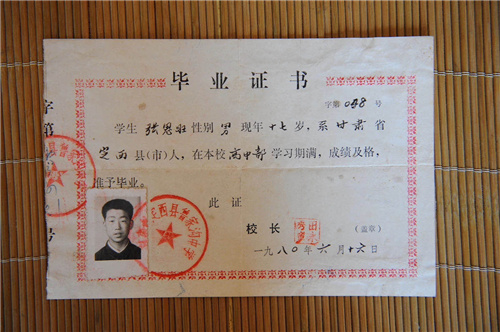 毕业证书
字第048号
学生 张恩 性别 男 现年十七岁，系甘肃省
定西县(市)人，在本校高中部学习期满，成绩及格，
准予毕业。
此证
校长
(盖章)
一九八〇年六月十六日
字第
号
定西县鲁家沟中学